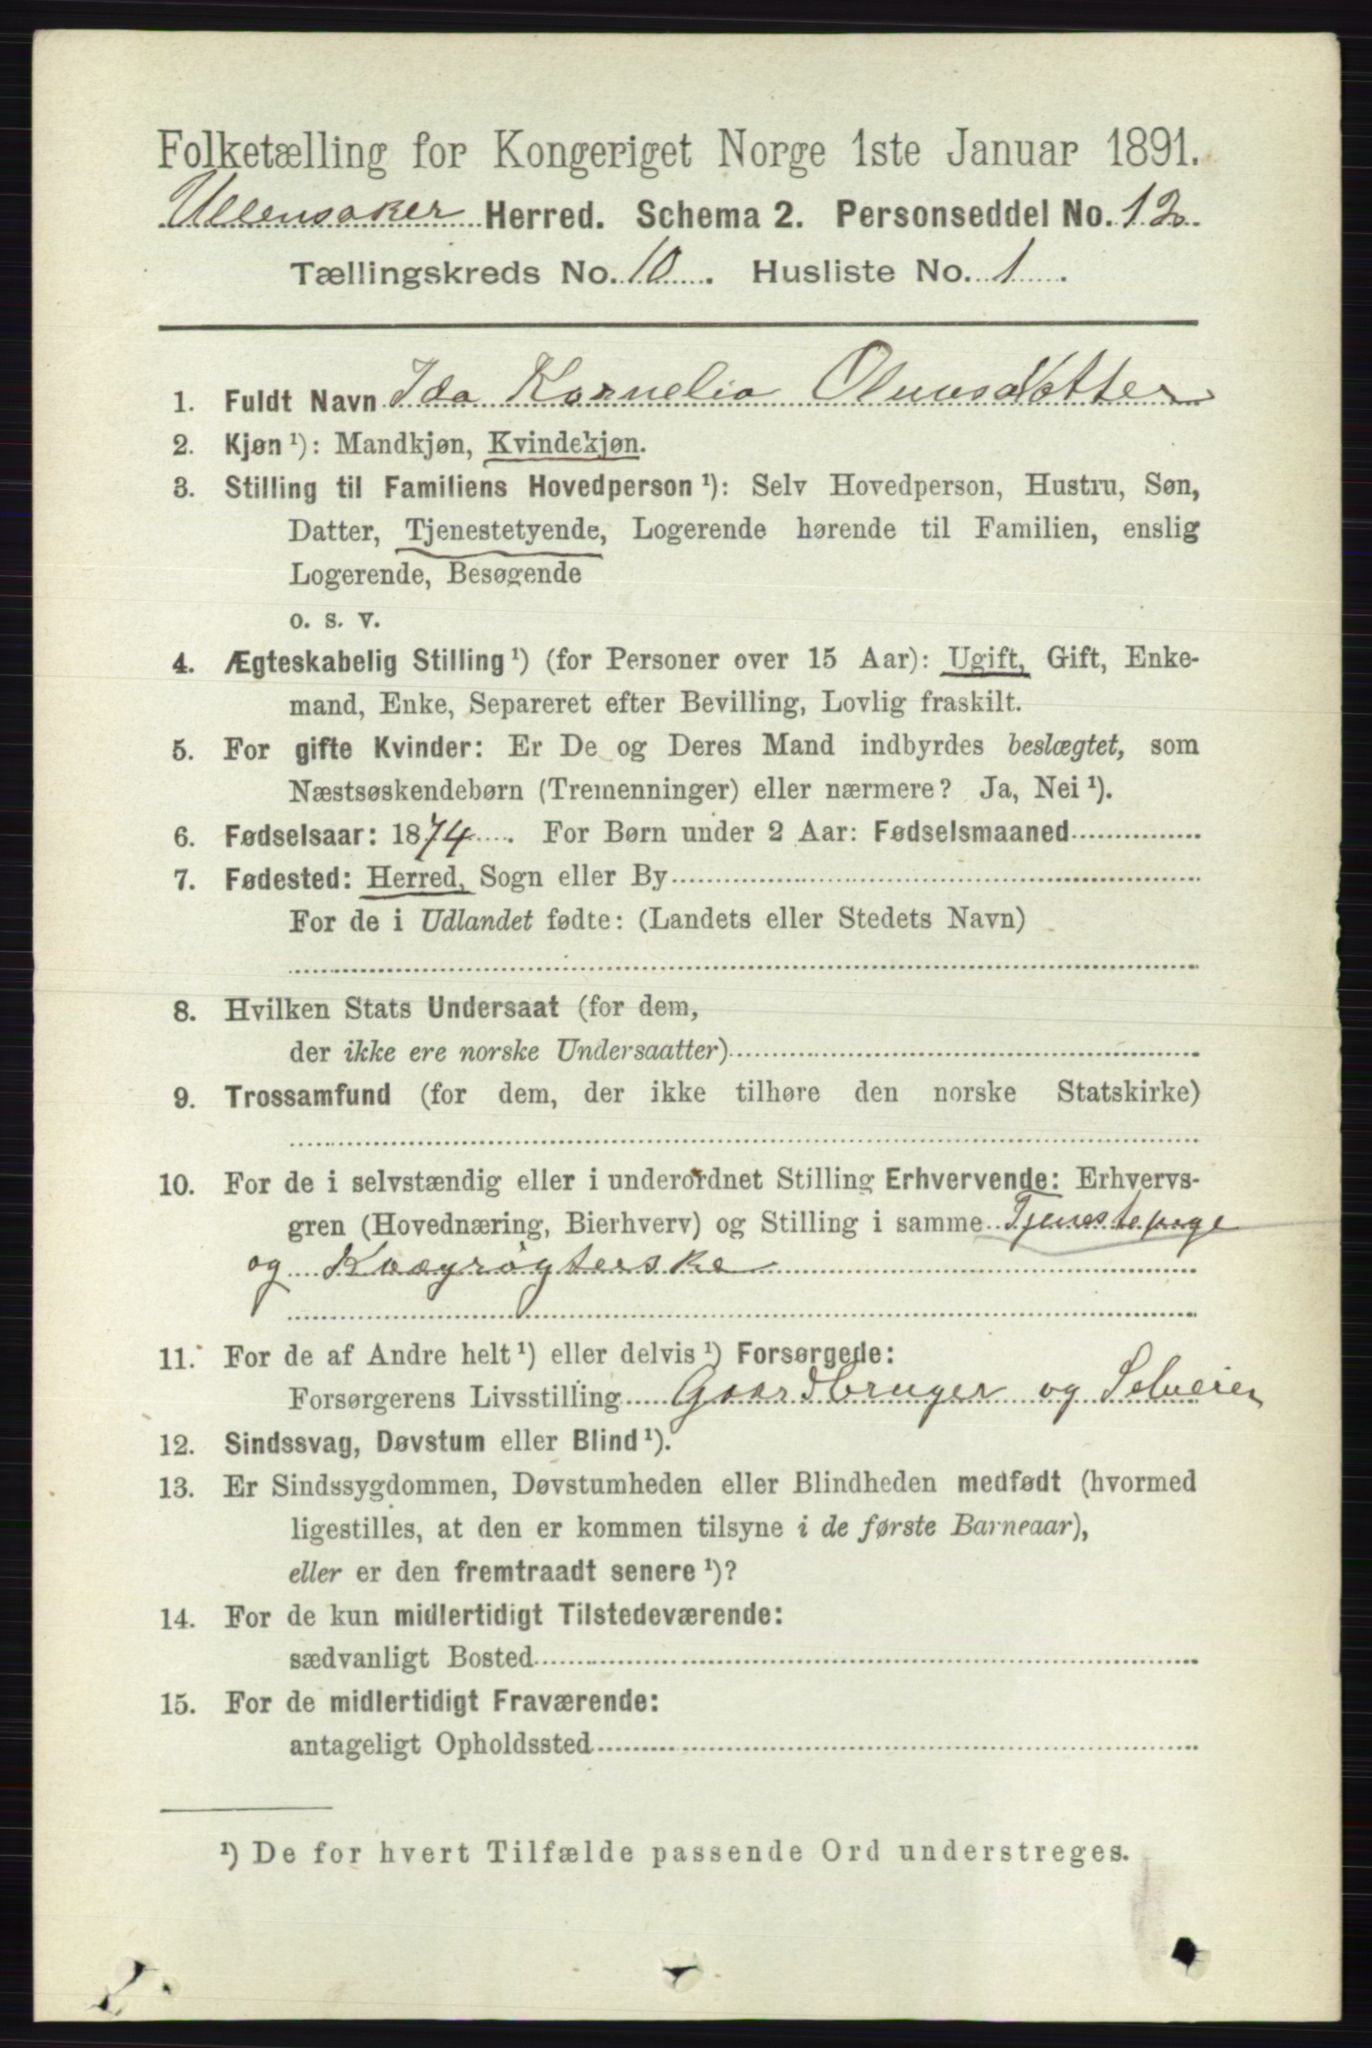 Folketælling for Kongeriget Norge 1ste Januar 1891.
Ullensaker Herred. Schema 2. Personseddel No. 12.
Tællingskreds No. 10. Husliste No. 1.
1. Fuldt Navn Ida Kornelia Olausdatter
2. Kjøn ¹): Mandkjøn, Kvindekjøn.
3. Stilling til Familiens Hovedperson ¹): Selv Hovedperson, Hustru, Søn,
Datter, Tjenestetyende, Logerende hørende til Familien, enslig
Logerende, Besøgende
o. s. v.
4. Ægteskabelig Stilling ¹) (for Personer over 15 Aar): Ugift, Gift, Enke-
mand, Enke, Separeret efter Bevilling, Lovlig fraskilt.
5. For gifte Kvinder: Er De og Deres Mand indbyrdes beslægtet, som
Næstsøskendebørn (Tremenninger) eller nærmere? Ja, Nei ¹).
6. Fødselsaar: 1874. For Børn under 2 Aar: Fødselsmaaned
7. Fødested: Herred, Sogn eller By
For de i Udlandet fødte: (Landets eller Stedets Navn)
8. Hvilken Stats Undersaat (for dem,
der ikke ere norske Undersaatter)
9. Trossamfund (for dem, der ikke tilhøre den norske Statskirke)
10. For de i selvstændig eller i underordnet Stilling Erhvervende: Erhvervs-
gren (Hovednæring, Bierhverv) og Stilling i samme Tjenestepige
og Kvægrøgterske
11. For de af Andre helt ¹) eller delvis ¹) Forsørgede:
Forsørgerens Livsstilling Gaardbruger og Selveier
12. Sindssvag, Døvstum eller Blind ¹).
13. Er Sindssygdommen, Døvstumheden eller Blindheden medfødt (hvormed
ligestilles, at den er kommen tilsyne i de første Barneaar),
eller er den fremtraadt senere ¹)?
14. For de kun midlertidigt Tilstedeværende:
sædvanligt Bosted
15. For de midlertidigt Fraværende:
antageligt Opholdssted
¹) De for hvert Tilfælde passende Ord understreges.